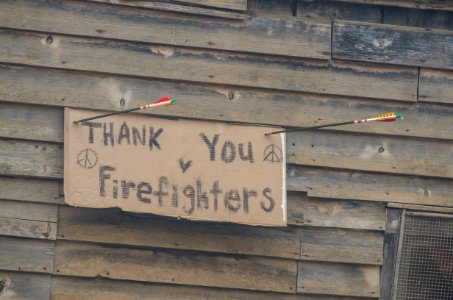 THANK You
Firefighters